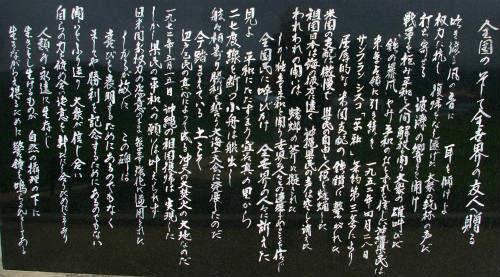 全国の そして全世界の友人へ贈る
吹き渡る風の音に 耳を傾けよ
権力に抗し 復帰をなし遂げた 大衆の乾杯の声だ
打ち寄せる 波濤の響きを聞け
戦争を拒み平和と人間解放を闘う大衆の雄叫びだ
“鉄の暴風”やみ平和のおとずれを信じた沖縄県民は
米軍占領に引き続き 一九五二年四月二八日
サンフランシスコ「平和」条約第三条により
屈辱的な米国支配の鉄鎖に繋がれた
米国の支配は傲慢で 県民の自由と人権を蹂躙した
祖国日本は海の彼方に遠く 沖縄県民の声は空しく消えた
われわれの闘いは 蟷螂の斧に擬された
しかし独立と平和を闘う世界の人々との連帯あることを信じ
全国民に呼びかけ 全世界の人々に訴えた
見よ 平和にたたずまう宜名真の里から
二七度線を断つ小舟は船出し
舷々相寄り勝利を誓う大海上大会に発展したのだ
今踏まえている 土こそ
辺戸区民の真心によって成る沖天の大焚火の大地なのだ
一九七二年五月一五日 沖縄の祖国復帰は実現した
しかし県民の平和への願いは叶えられず
日米国家権力の恣意のまま軍事強化に逆用された
しかるが故に この碑は
喜びを表明するためにあるのでもなく
ましてや勝利を記念するためにあるのでもない
闘いをふり返り 大衆が信じ合い
自らの力を確め合い決意を新たにし合うためにこそあり
人類が永遠に生存し
生きとし生けるものが 自然の摂理の下に
生きながらえ得るために 警鐘を鳴らさんとしてある